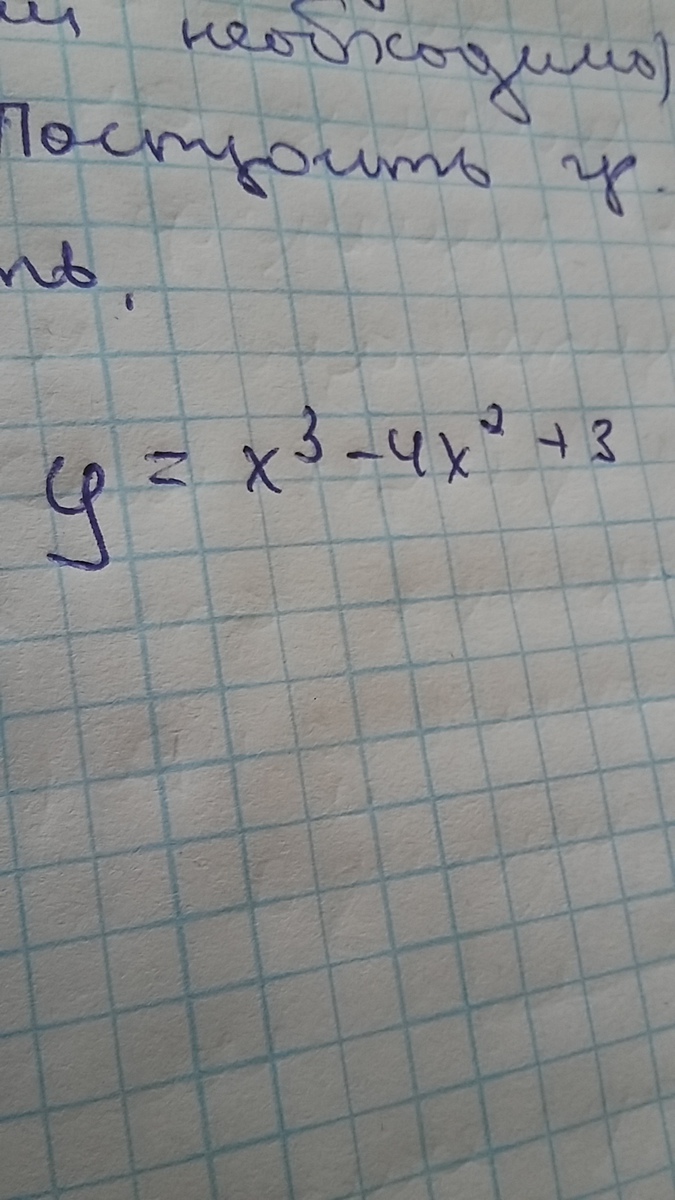 необходимо)
Построить гр.
ть.
y = x³ - 4x² + 3